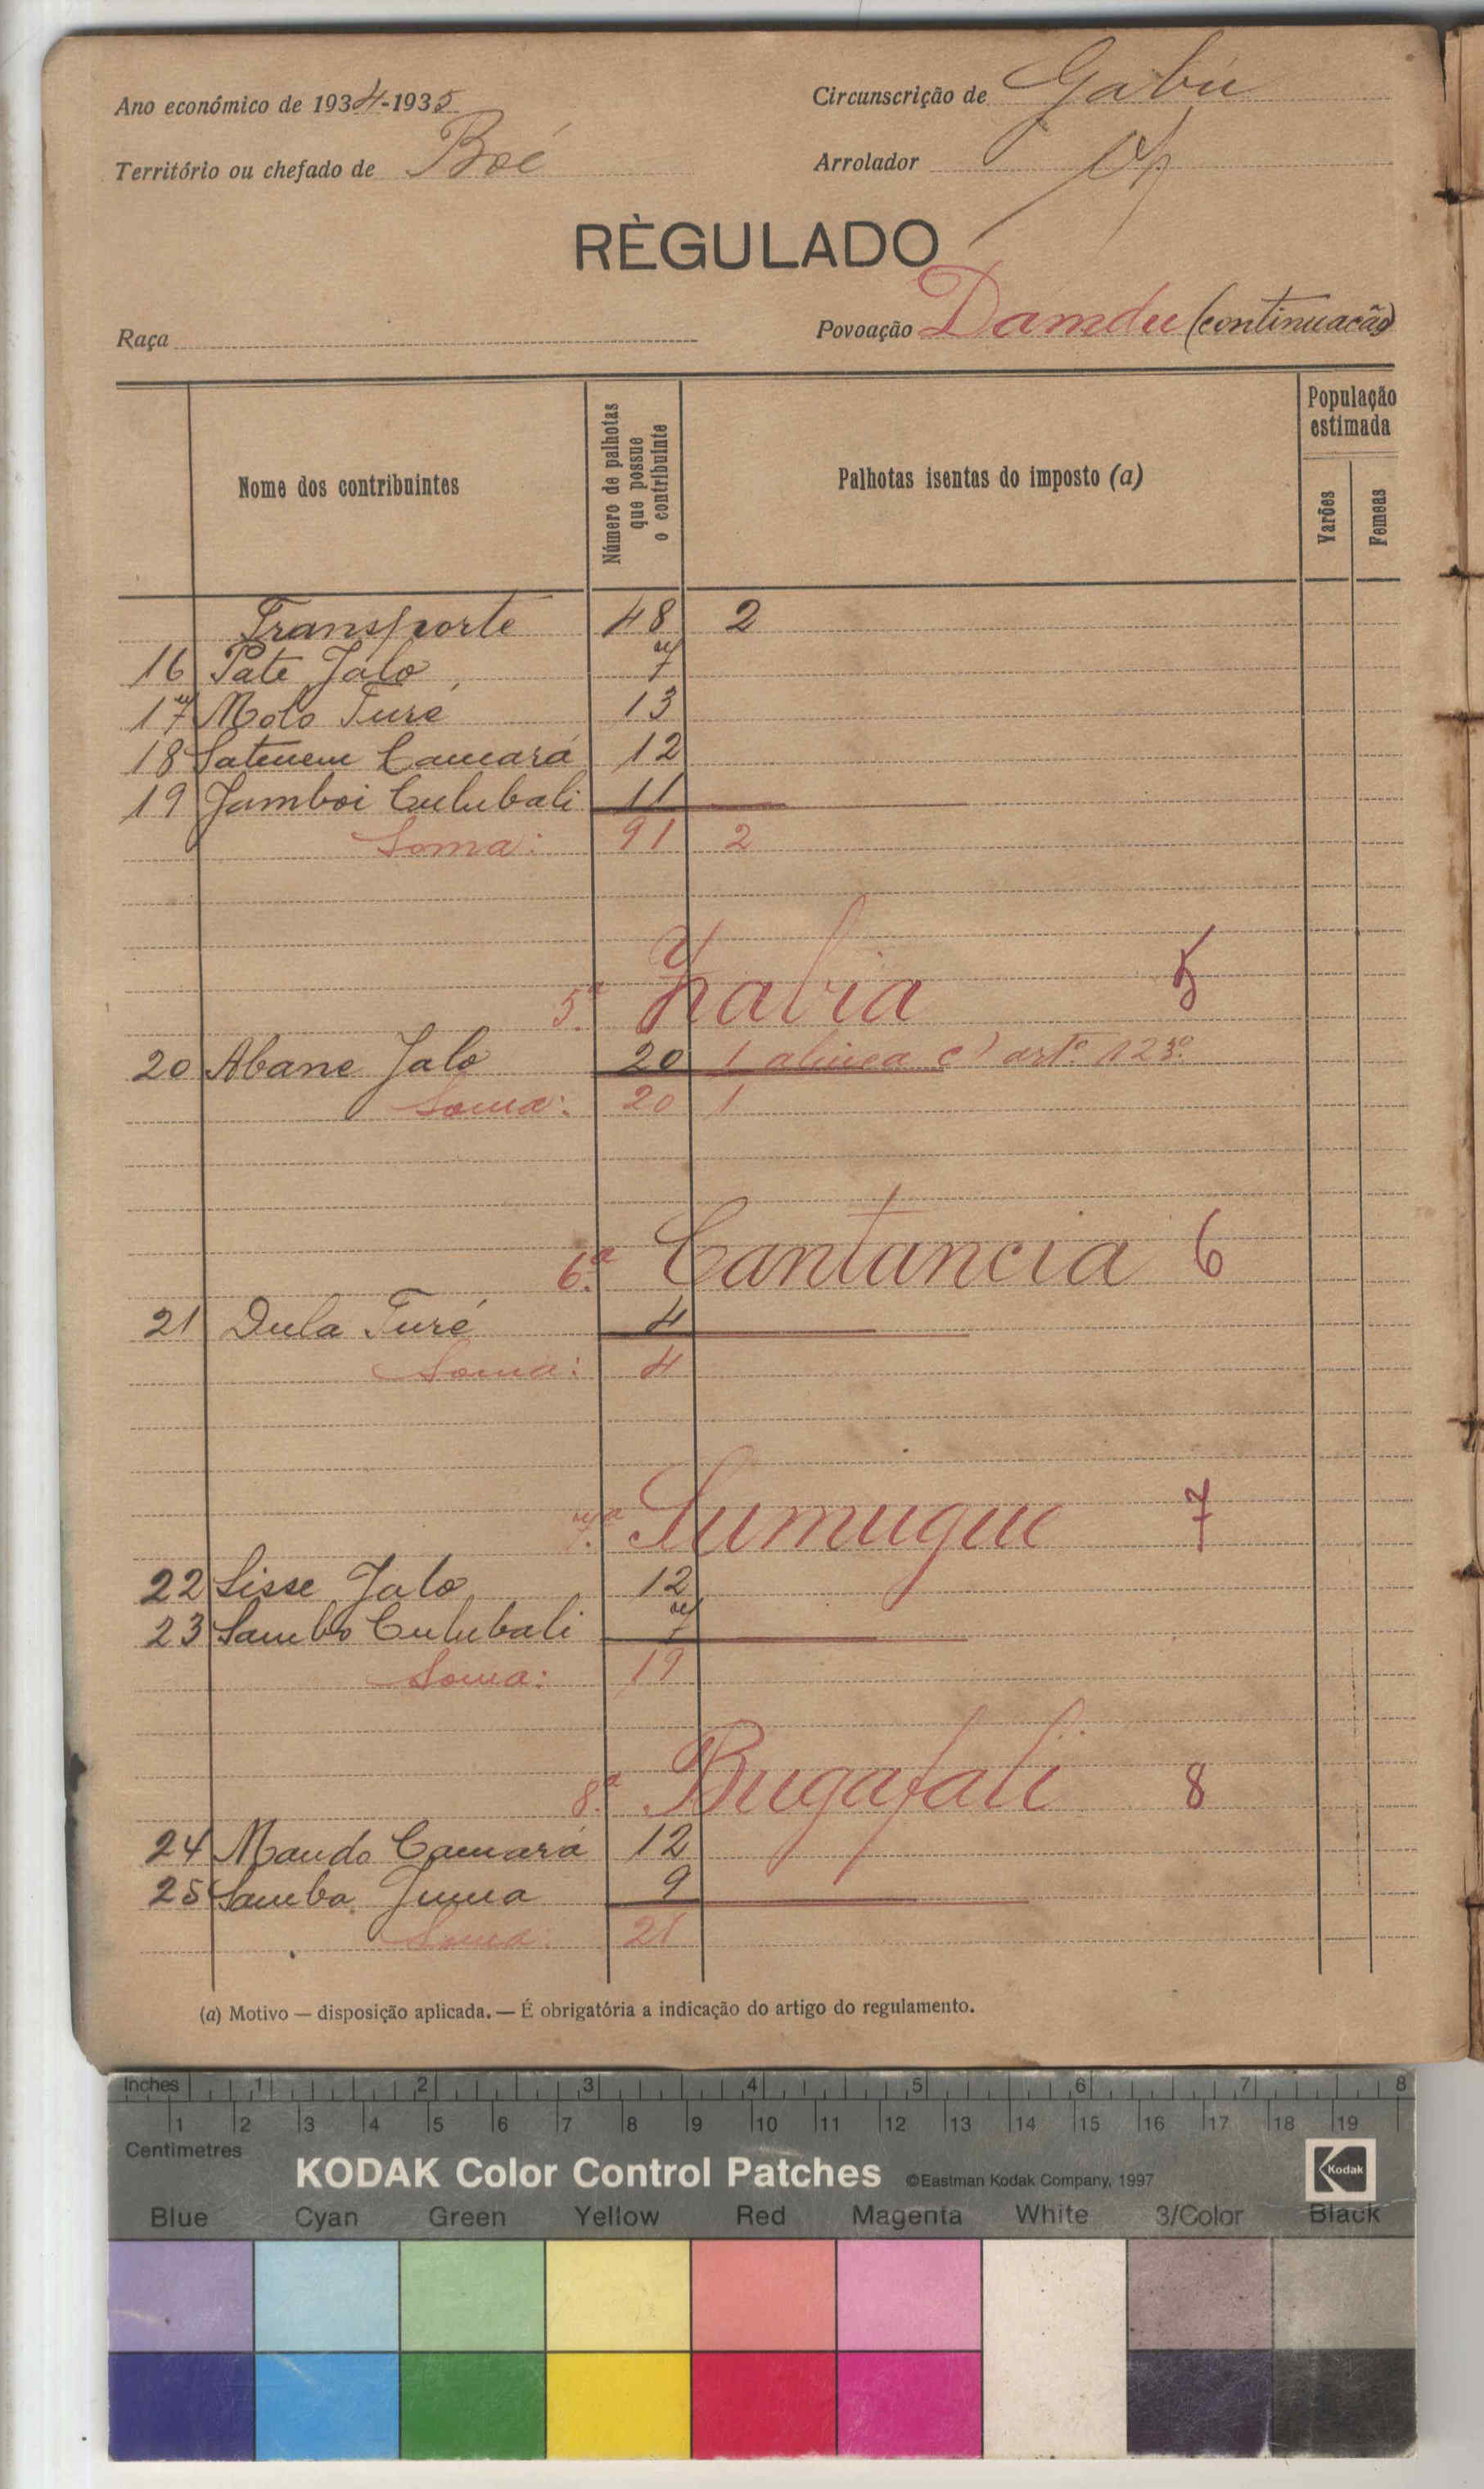 Ano económico de 1934-1935
Circunscrição de Gabú
Território ou chefado de Boé
Arrolador
RÈGULADO
Raça
Povoação Damdu (continuacão)
Nome dos contribuintes
Número de palhotas que possue o contribuinte
Palhotas isentas do imposto (a)
População estimada
Varões
Femeas
Transporte 48 2
16 Pate Jaló 7
17 Moló Turé 13
18 Satenem Camará 12
19 Jamboi Culubali 11
Soma: 91 2
5ª Yabia 5
20 Abane Jaló 20 1 alinea c) artº 123º
Soma: 20 1
6ª Cantancia 6
21 Dula Turé 4
Soma: 4
7ª Sumugue 7
22 Sisse Jaló 12
23 Sambo Culubali 7
Soma: 19
8ª Bugafali 8
24 Maudo Camará 12
25 Samba Juma 9
Soma: 21
(a) Motivo — disposição aplicada. — É obrigatória a indicação do artigo do regulamento.
Inches 1 2 3 4 5 6 7 8
1 2 3 4 5 6 7 8 9 10 11 12 13 14 15 16 17 18 19
Centimetres
KODAK Color Control Patches ©Eastman Kodak Company, 1997 Kodak
Blue Cyan Green Yellow Red Magenta White 3/Color Black